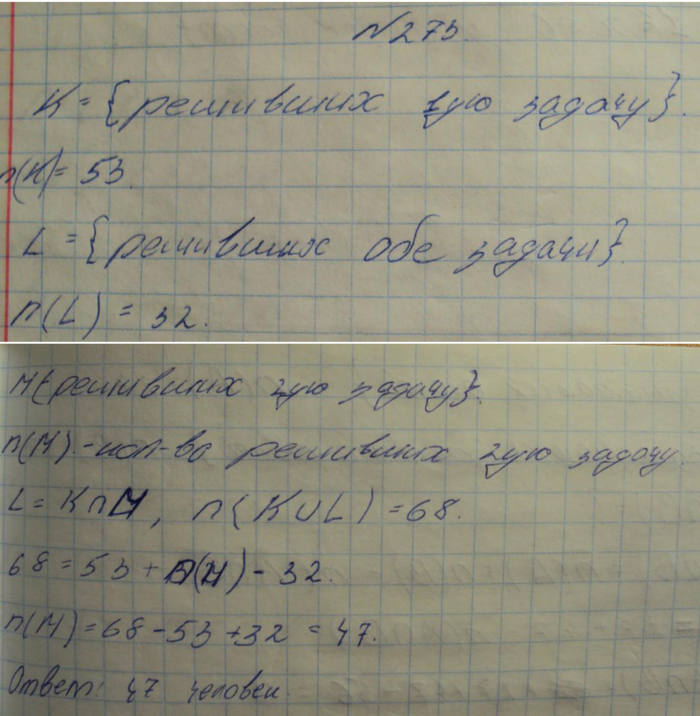 N273.
K = {решивших 1ую задачу}.
n(K) = 53.
L = {решивших обе задачи}.
n(L) = 32.
M{решивших 2ую задачу}.
n(M). - кол-во решивших 2ую задачу.
L = K∩M, n(K∪L) = 68.
68 = 53 + n(M) - 32.
n(M) = 68 - 53 + 32 = 47.
Ответ: 47 человек.